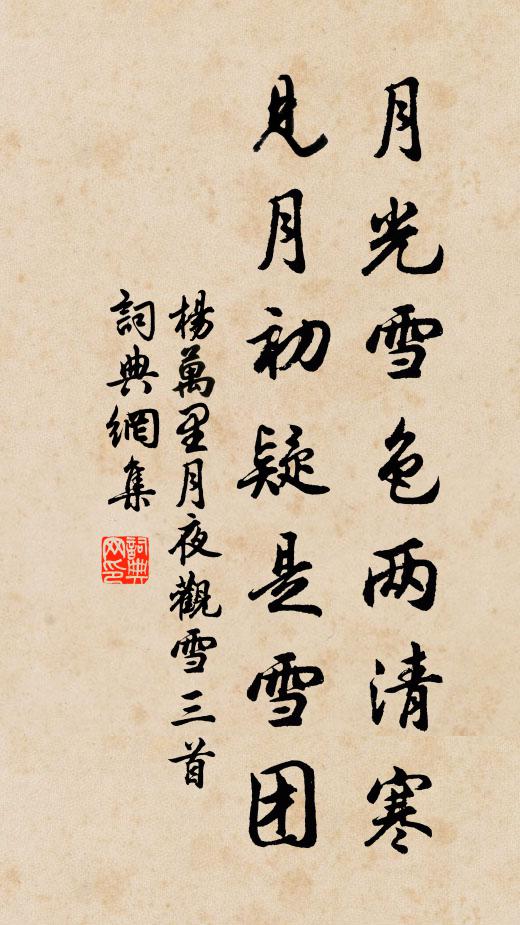 月光雪色两清寒
見月初疑是雪团
楊萬里月夜觀雪三首
詞典網集
詞典网印